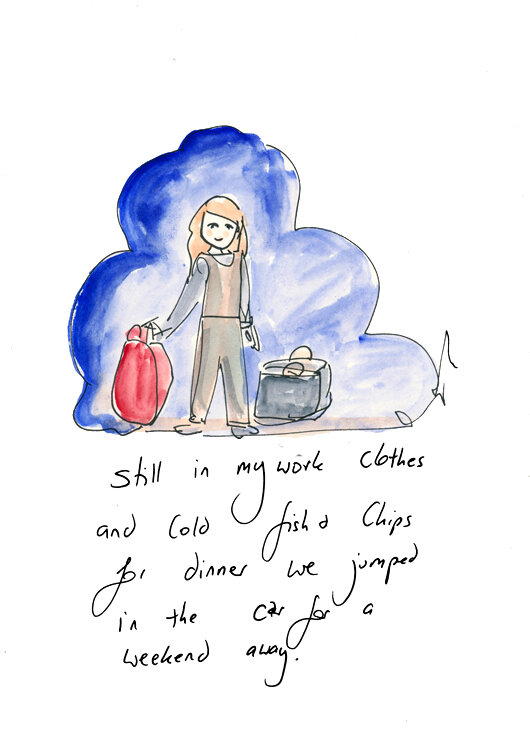 Still in my work clothes
and cold fish & chips
for dinner we jumped
in the car for a
weekend away.